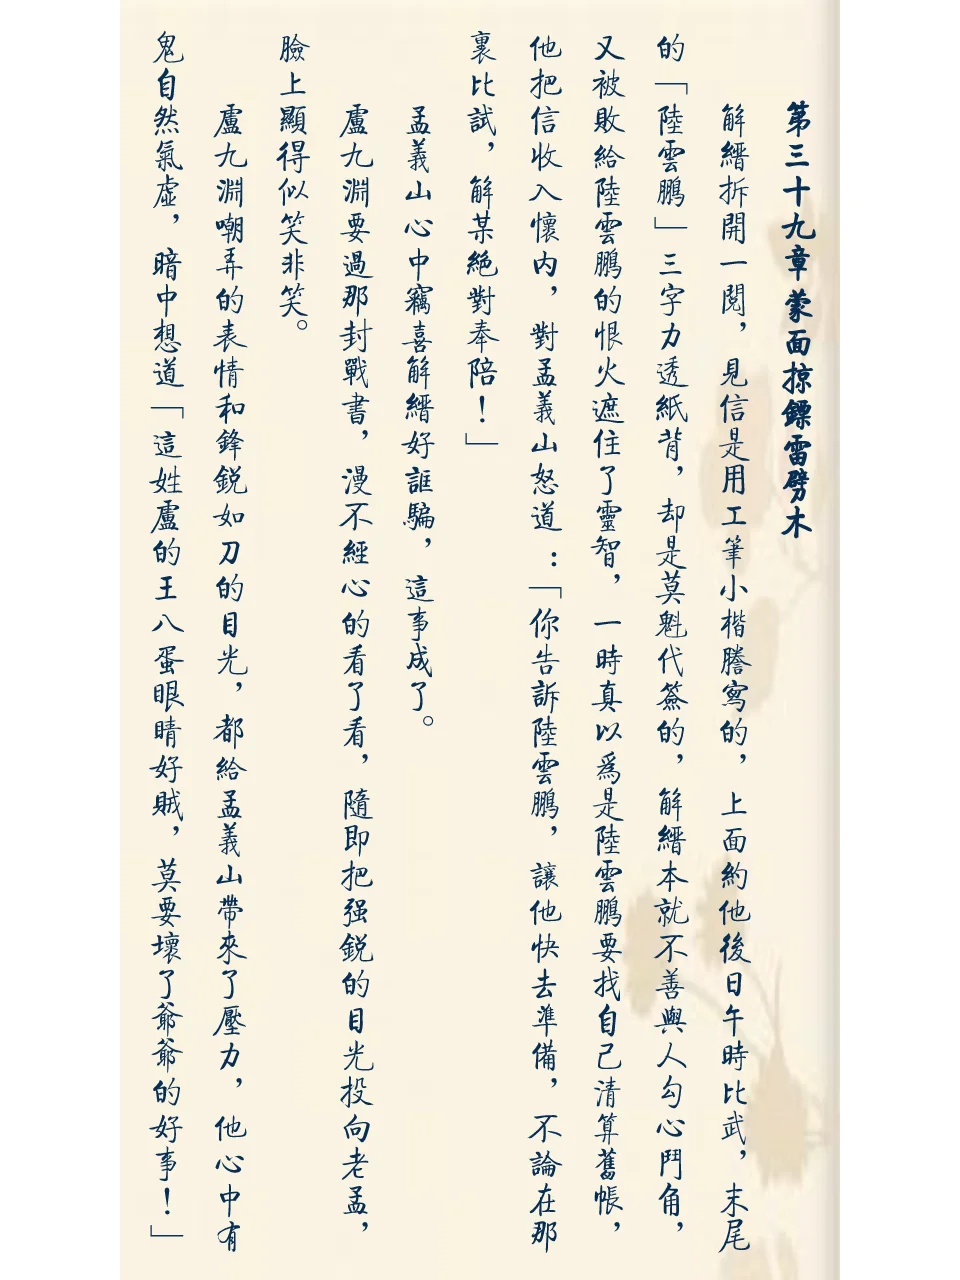 第三十九章蒙面掠鏢雷劈木
解縉拆開一閱，見信是用工筆小楷謄寫的，上面約他後日午時比武，末尾
的「陸雲鵬」三字力透紙背，却是莫魁代簽的，解縉本就不善與人勾心鬥角，
又被敗給陸雲鵬的恨火遮住了靈智，一時真以爲是陸雲鵬要找自己清算舊帳，
他把信收入懷内，對孟義山怒道：「你告訴陸雲鵬，讓他快去準備，不論在那
裏比試，解某絕對奉陪！」
孟義山心中竊喜解縉好誆騙，這事成了。
盧九淵要過那封戰書，漫不經心的看了看，隨即把强鋭的目光投向老孟，
臉上顯得似笑非笑。
盧九淵嘲弄的表情和鋒鋭如刀的目光，都給孟義山帶來了壓力，他心中有
鬼自然氣虛，暗中想道「這姓盧的王八蛋眼睛好賊，莫要壞了爺爺的好事！」